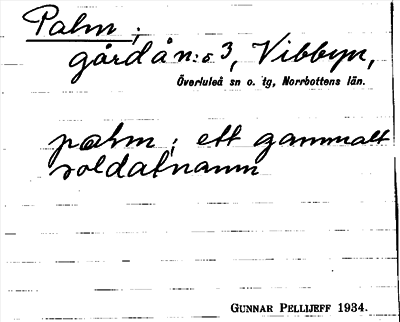 Palm ;
gård å n:o 3, Vibbyn,
Överluleå sn o. tg, Norrbottens län.
palm ; ett gammalt
soldatnamn
GUNNAR PELLIJEFF 1934.